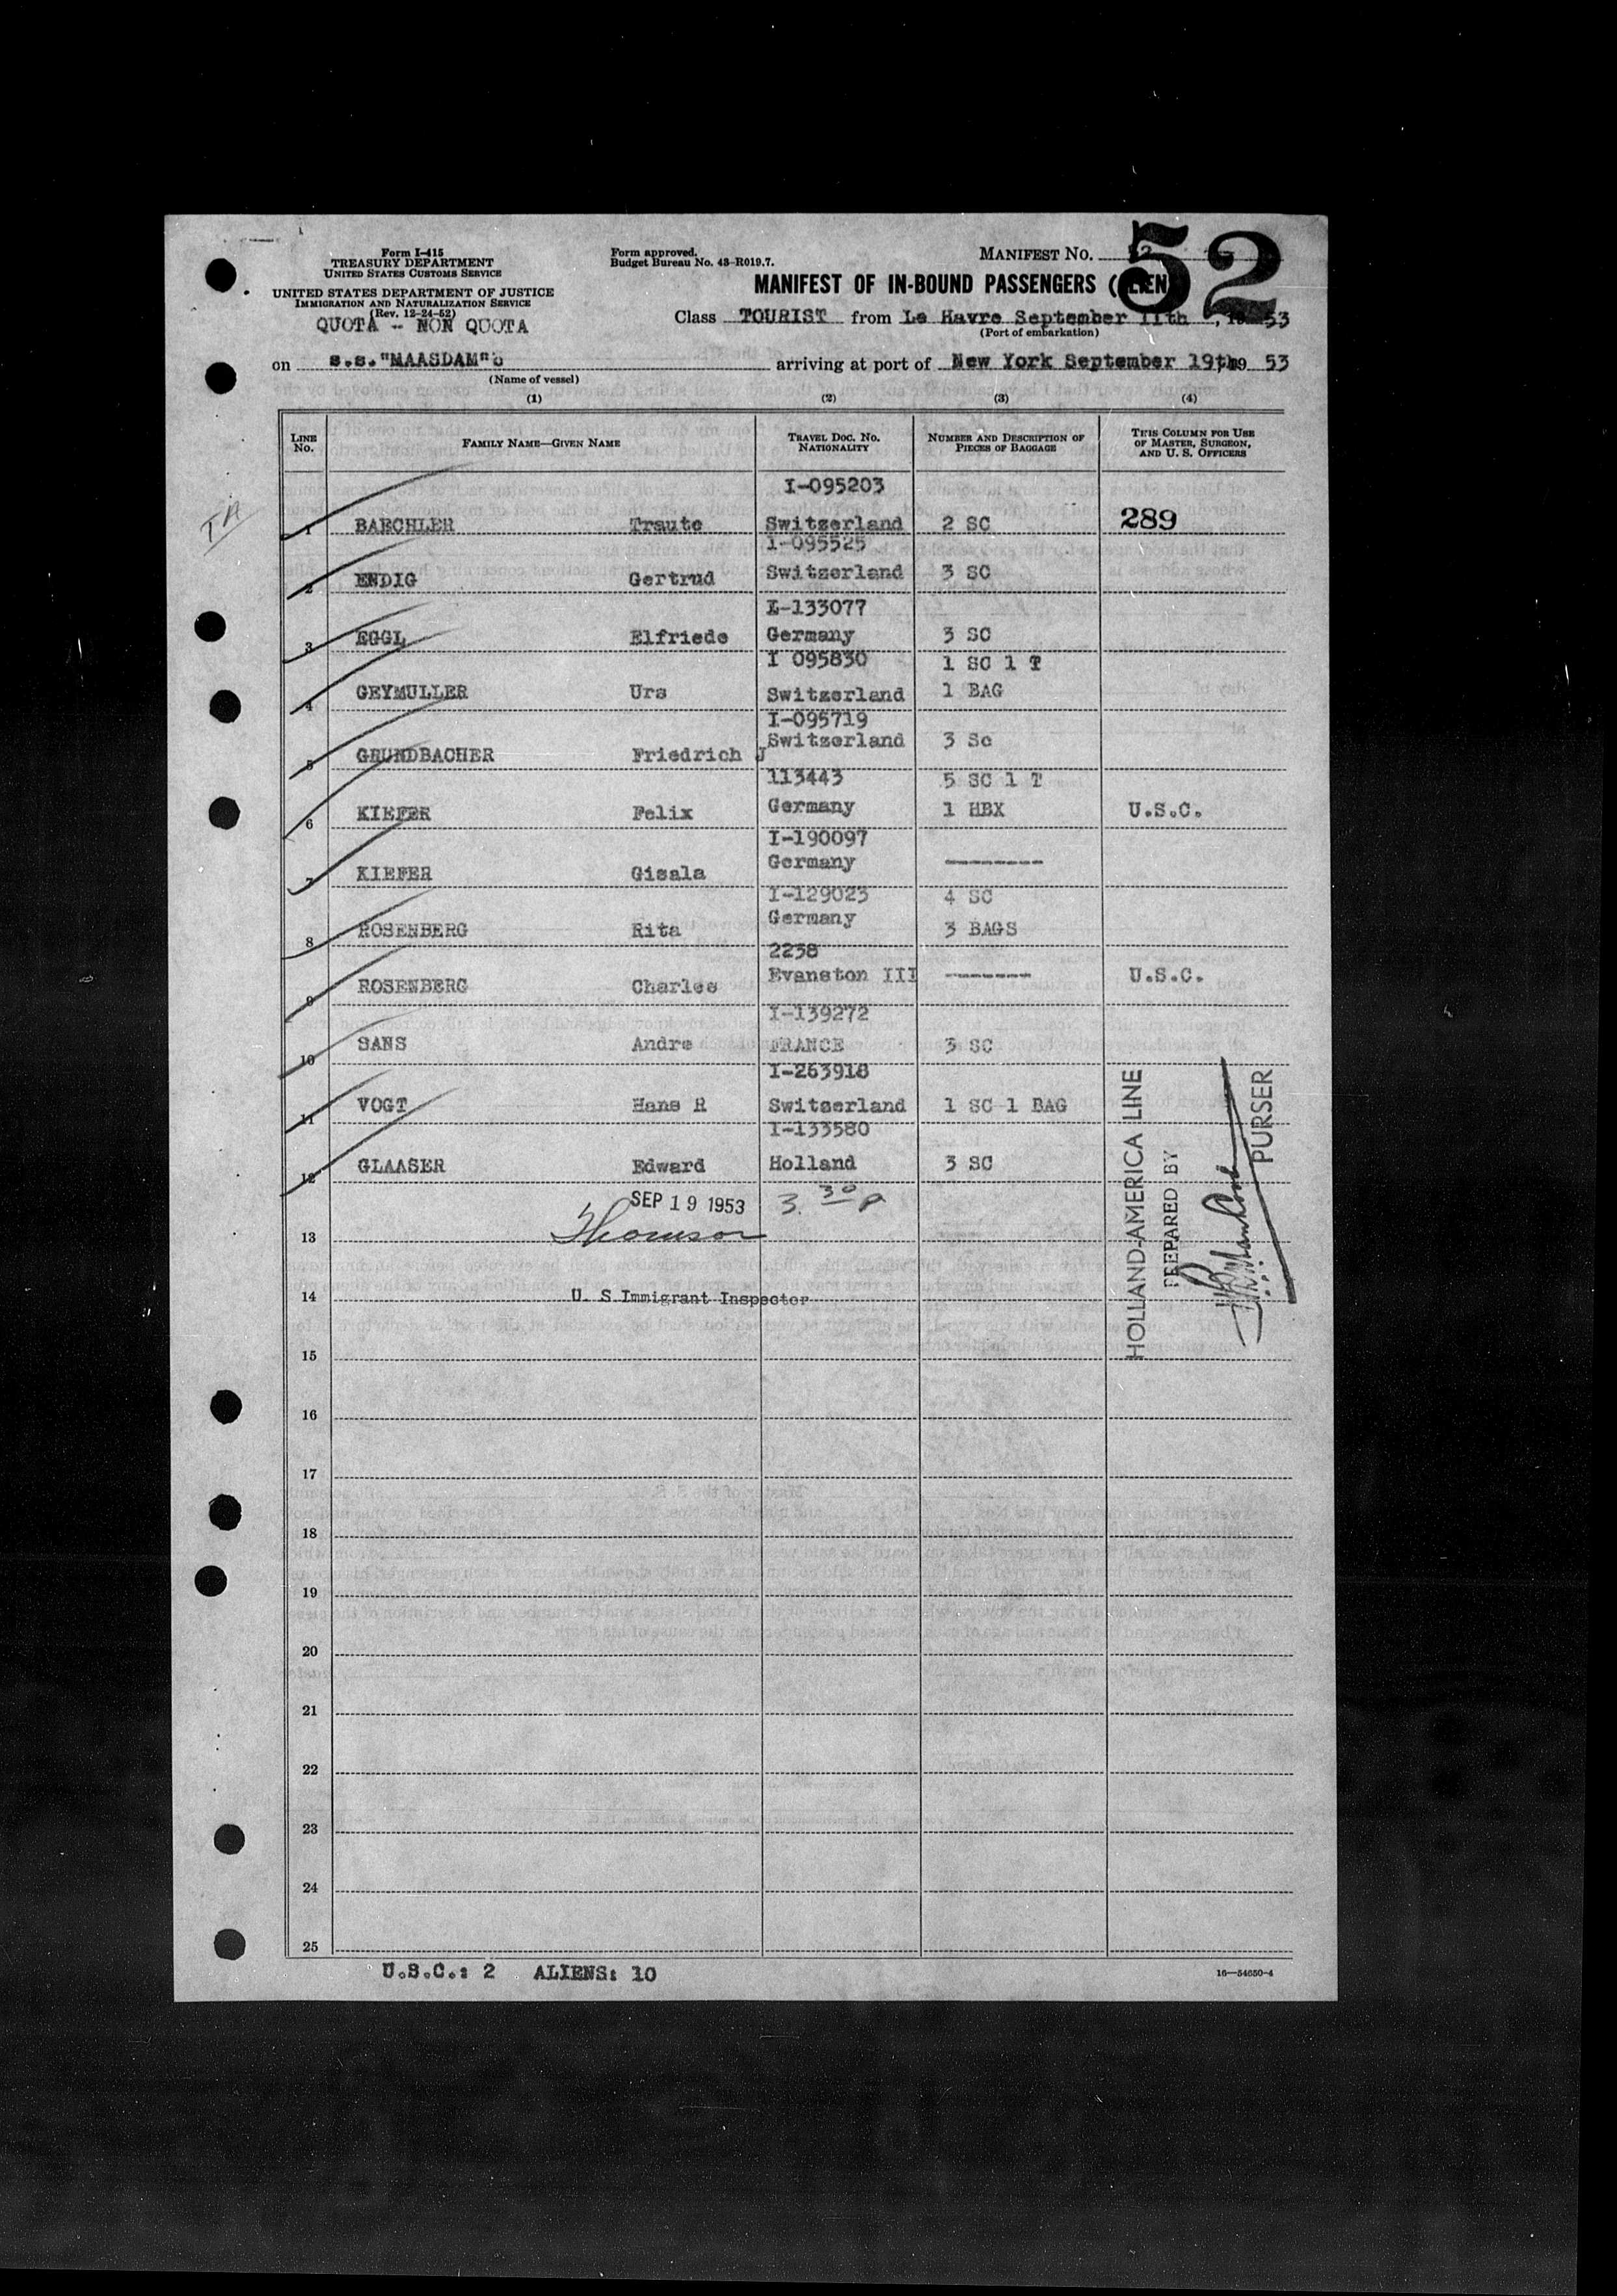 Form I-415
TREASURY DEPARTMENT
UNITED STATES CUSTOMS SERVICE
UNITED STATES DEPARTMENT OF JUSTICE
IMMIGRATION AND NATURALIZATION SERVICE
(Rev. 12-24-52)
QUOTA - NON QUOTA
Form approved.
Budget Bureau No. 43-R019.7.
MANIFEST No. 52
52
MANIFEST OF IN-BOUND PASSENGERS (ALIEN
Class TOURIST from Le Havre September 11th, 1953
(Port of embarkation)
on s.s."MAASDAM" arriving at port of New York September 19th, 19 53
(Name of vessel)
(1) (2) (3) (4)
LINE No. FAMILY NAME—GIVEN NAME TRAVEL DOC. NO. NATIONALITY NUMBER AND DESCRIPTION OF PIECES OF BAGGAGE THIS COLUMN FOR USE OF MASTER, SURGEON, AND U. S. OFFICERS
I-095203
1 BAECHLER Traute Switzerland 2 SC 289
I-095525
2 ENDIG Gertrud Switzerland 3 SC
I-133077
3 EGGL Elfriede Germany 3 SC
I 095830 1 SC 1 T
4 GEYMULLER Urs Switzerland 1 BAG
I-095719
5 GRUNDBACHER Friedrich J Switzerland 3 Sc
113443 5 SC 1 T
6 KIEFER Felix Germany 1 HBX U.S.C.
I-190097
7 KIEFER Gisala Germany --------
I-129023 4 SC
8 ROSENBERG Rita Germany 3 BAGS
2238
9 ROSENBERG Charles Evanston III ------- U.S.C.
I-139272
10 SANS Andre FRANCE 3 SC
I-263918
11 VOGT Hans R Switzerland 1 SC 1 BAG
I-133580
12 GLAASER Edward Holland 3 SC
SEP 19 1953 3.30 P
13 Thomson
14 U. S Immigrant Inspector
15
16
17
18
19
20
21
22
23
24
25
HOLLAND-AMERICA LINE
PREPARED BY
PURSER
U.S.C.: 2 ALIENS: 10
16—54650-4